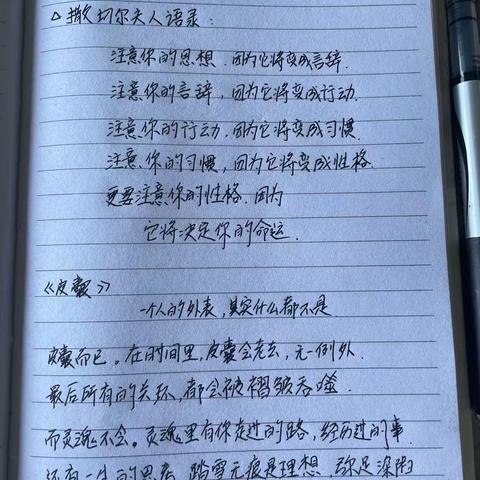 △撒切尔夫人语录：
注意你的思想．因为它将变成言辞．
注意你的言辞，因为它将变成行动．
注意你的行动，因为它将变成习惯．
注意你的习惯，因为它将变成性格．
更要注意你的性格．因为
它将决定你的命运．
《皮囊》
一个人的外表，其实什么都不是
皮囊而已。在时间里，皮囊会老去，无一例外．
最后所有的美好，都会被褶皱吞噬．
而灵魂不会。灵魂里有你走过的路，经历过的事．
还有一生的思考．踏雪无痕是理想，